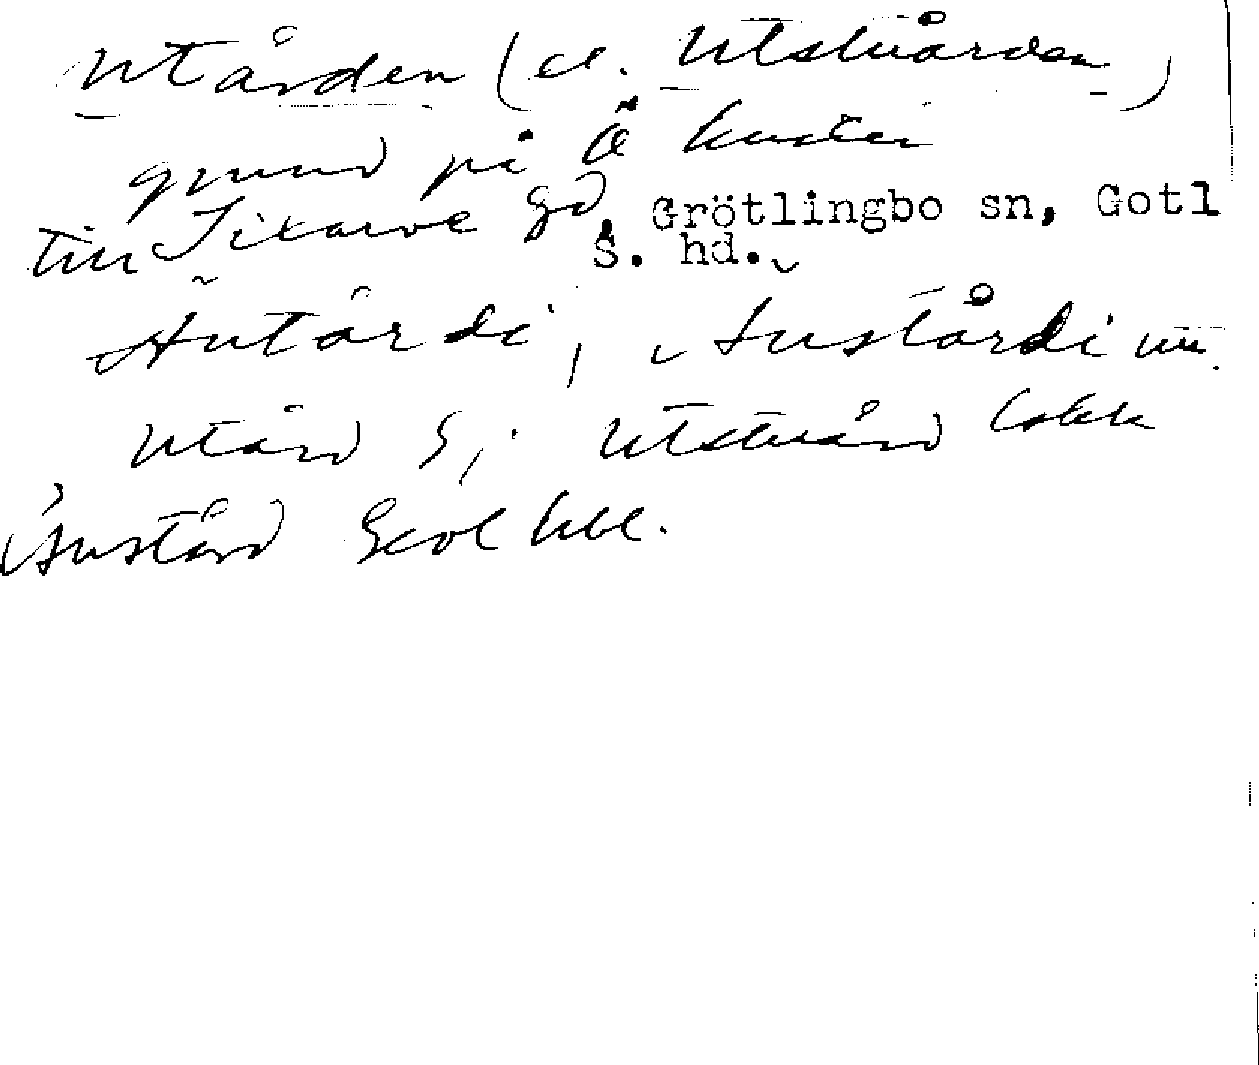 Utården (el. Utstuården)
grund på Ö kusten
till Sixarve gd, Grötlingbo sn, Gotl
S. hd.
Äutårdi, Austårdi
Utård S;. Utstuård
Austård Ekol kbl.